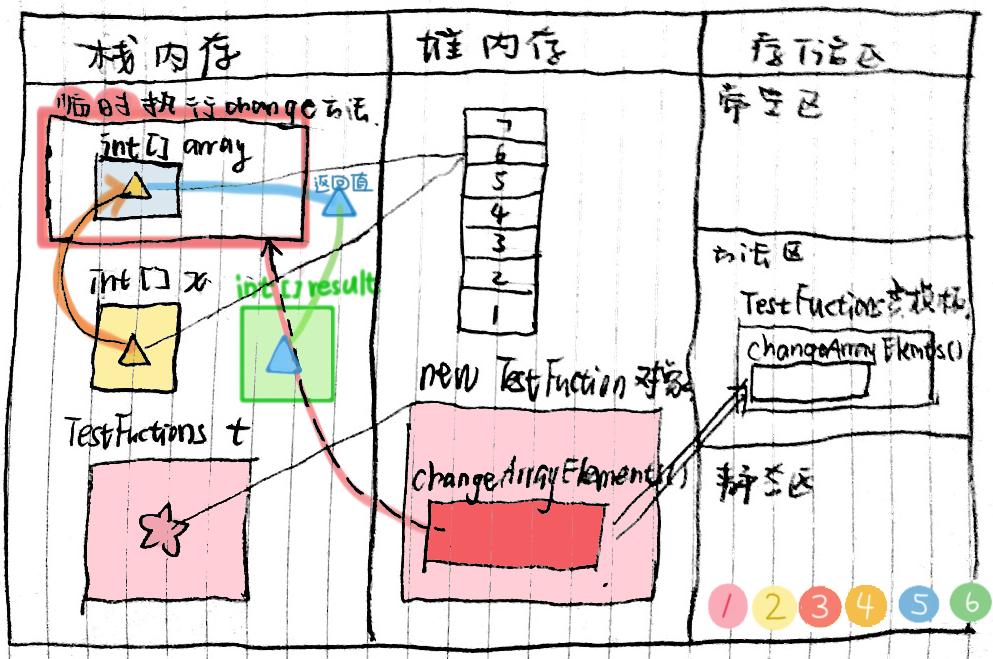 栈内存
堆内存
临时执行change方法.
int[] array
返回值
int[] x
int[] result
TestFuctions t
7
6
5
4
3
2
1
new TestFuction 对象
changeArrayElements()
常量区
方法区
TestFuctions类模板
changeArray Elemts()
静态区
1 2 3 4 5 6